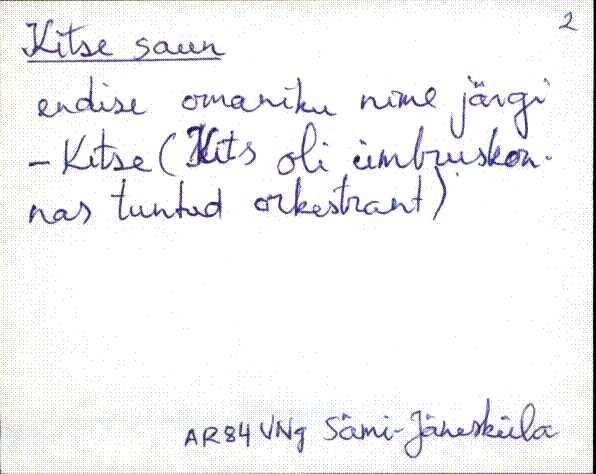 2
Kitse saun
endise omaniku nime järgi
- Kitse (Kits oli ümbruskon-
nas tuntud orkestrant)
AR84 VNg Sämi-Jänesküla